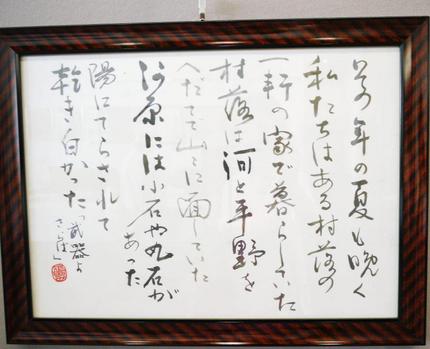 その年の夏も晩く
私たちはある村落の
一軒の家で暮らしていた
村落は河と平野を
へだてて山々に面していた
河原には小石や丸石が
あった
陽にてらされて
乾き白かった
「武器よ
さらば」